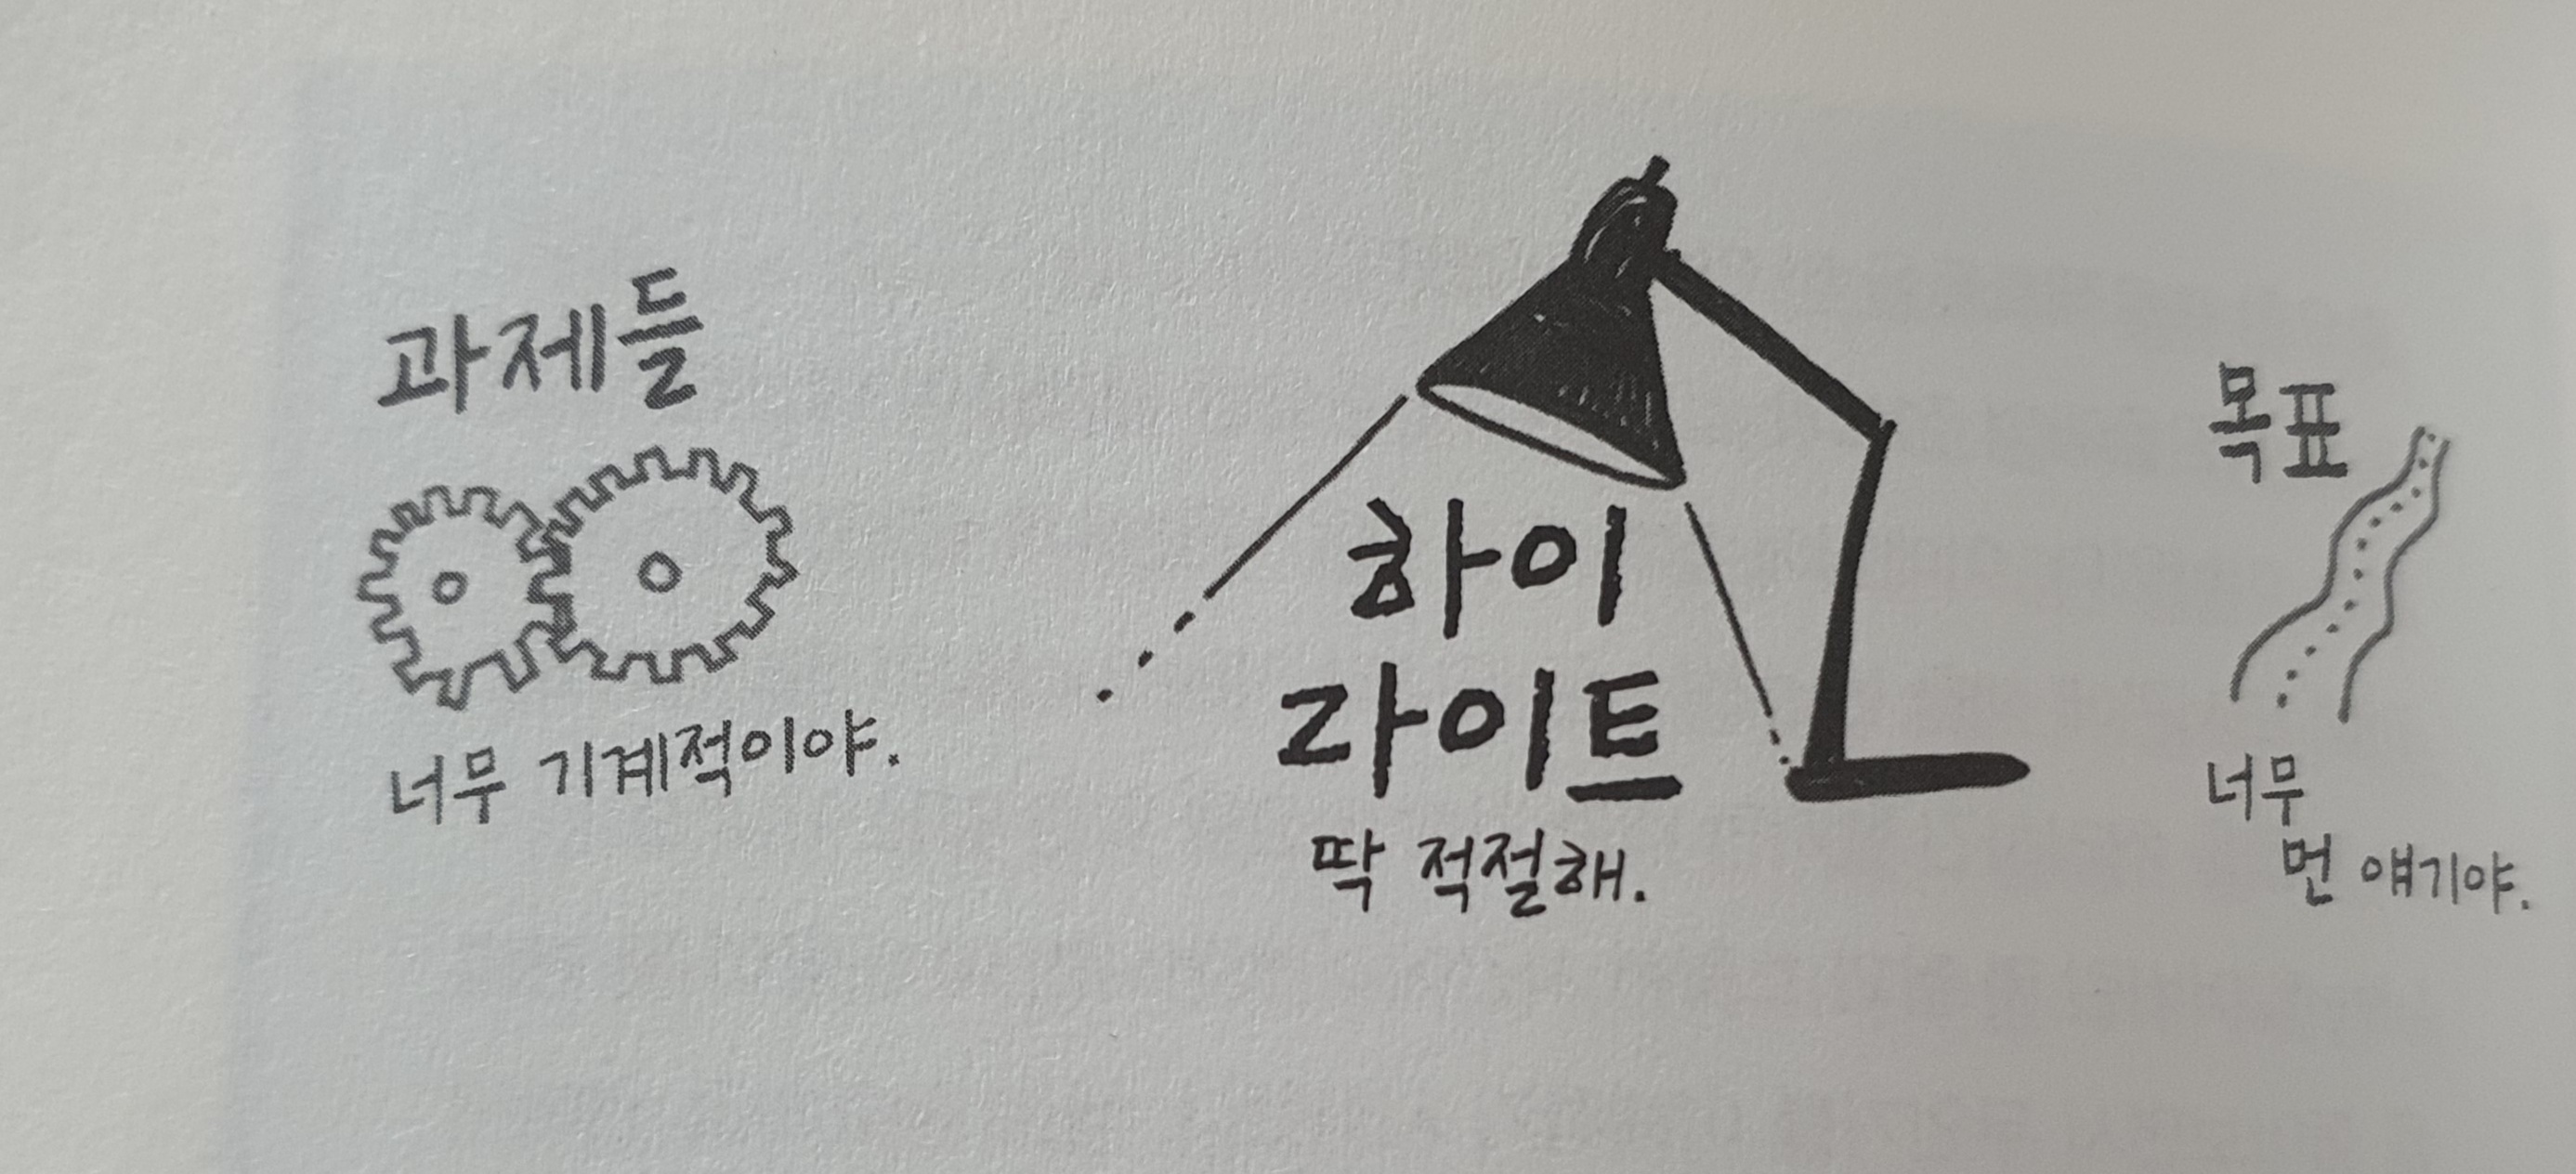 과제들
너무 기계적이야.
하이
라이트
딱 적절해.
목표
너무
먼 얘기야.